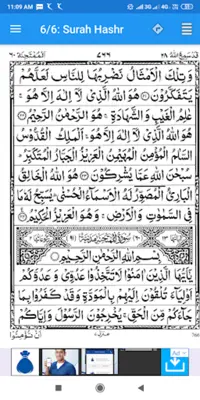 11:09 AM
6/6: Surah Hashr
قد سمع الله ٢٨
٧٦٦
الممتحنة ٦٠
وَتِلْكَ الْاَمْثَالُ نَضْرِبُهَا لِلنَّاسِ لَعَلَّهُمْ
يَتَفَكَّرُوْنَ ﴿۲۱﴾ هُوَ اللّٰهُ الَّذِيْ لَاۤ اِلٰهَ اِلَّا هُوَ ۚ
عٰلِمُ الْغَيْبِ وَالشَّهَادَةِ ۚ هُوَ الرَّحْمٰنُ الرَّحِيْمُ ﴿۲۲﴾
هُوَ اللّٰهُ الَّذِيْ لَاۤ اِلٰهَ اِلَّا هُوَ ۚ اَلْمَلِكُ الْقُدُّوْسُ
السَّلٰمُ الْمُؤْمِنُ الْمُهَيْمِنُ الْعَزِيْزُ الْجَبَّارُ الْمُتَكَبِّرُ ؕ
سُبْحٰنَ اللّٰهِ عَمَّا يُشْرِكُوْنَ ﴿۲۳﴾ هُوَ اللّٰهُ الْخَالِقُ
الْبَارِئُ الْمُصَوِّرُ لَهُ الْاَسْمَآءُ الْحُسْنٰى ؕ يُسَبِّحُ لَهٗ مَا
فِي السَّمٰوٰتِ وَالْاَرْضِ ۚ وَهُوَ الْعَزِيْزُ الْحَكِيْمُ ﴿۲۴﴾
بِسْمِ اللّٰهِ الرَّحْمٰنِ الرَّحِيْمِ
يٰۤاَيُّهَا الَّذِيْنَ اٰمَنُوْا لَا تَتَّخِذُوْا عَدُوِّيْ وَعَدُوَّكُمْ
اَوْلِيَآءَ تُلْقُوْنَ اِلَيْهِمْ بِالْمَوَدَّةِ وَقَدْ كَفَرُوْا بِمَا
جَآءَكُمْ مِّنَ الْحَقِّ ۚ يُخْرِجُوْنَ الرَّسُوْلَ وَاِيَّاكُمْ
اَنْ تُؤْمِنُوْا
Ad